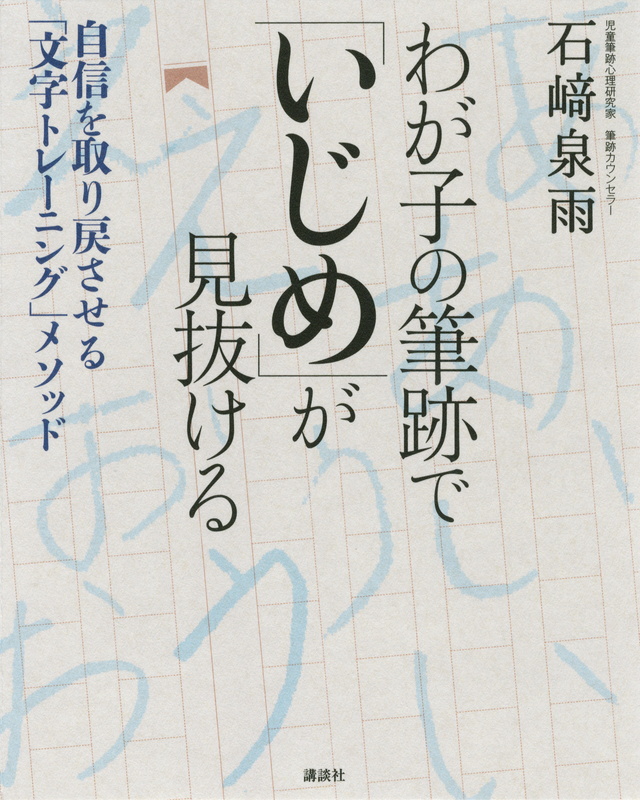 児童筆跡心理研究家 筆跡カウンセラー
石﨑泉雨
わが子の筆跡で
「いじめ」が
見抜ける
自信を取り戻させる
「文字トレーニング」メソッド
講談社